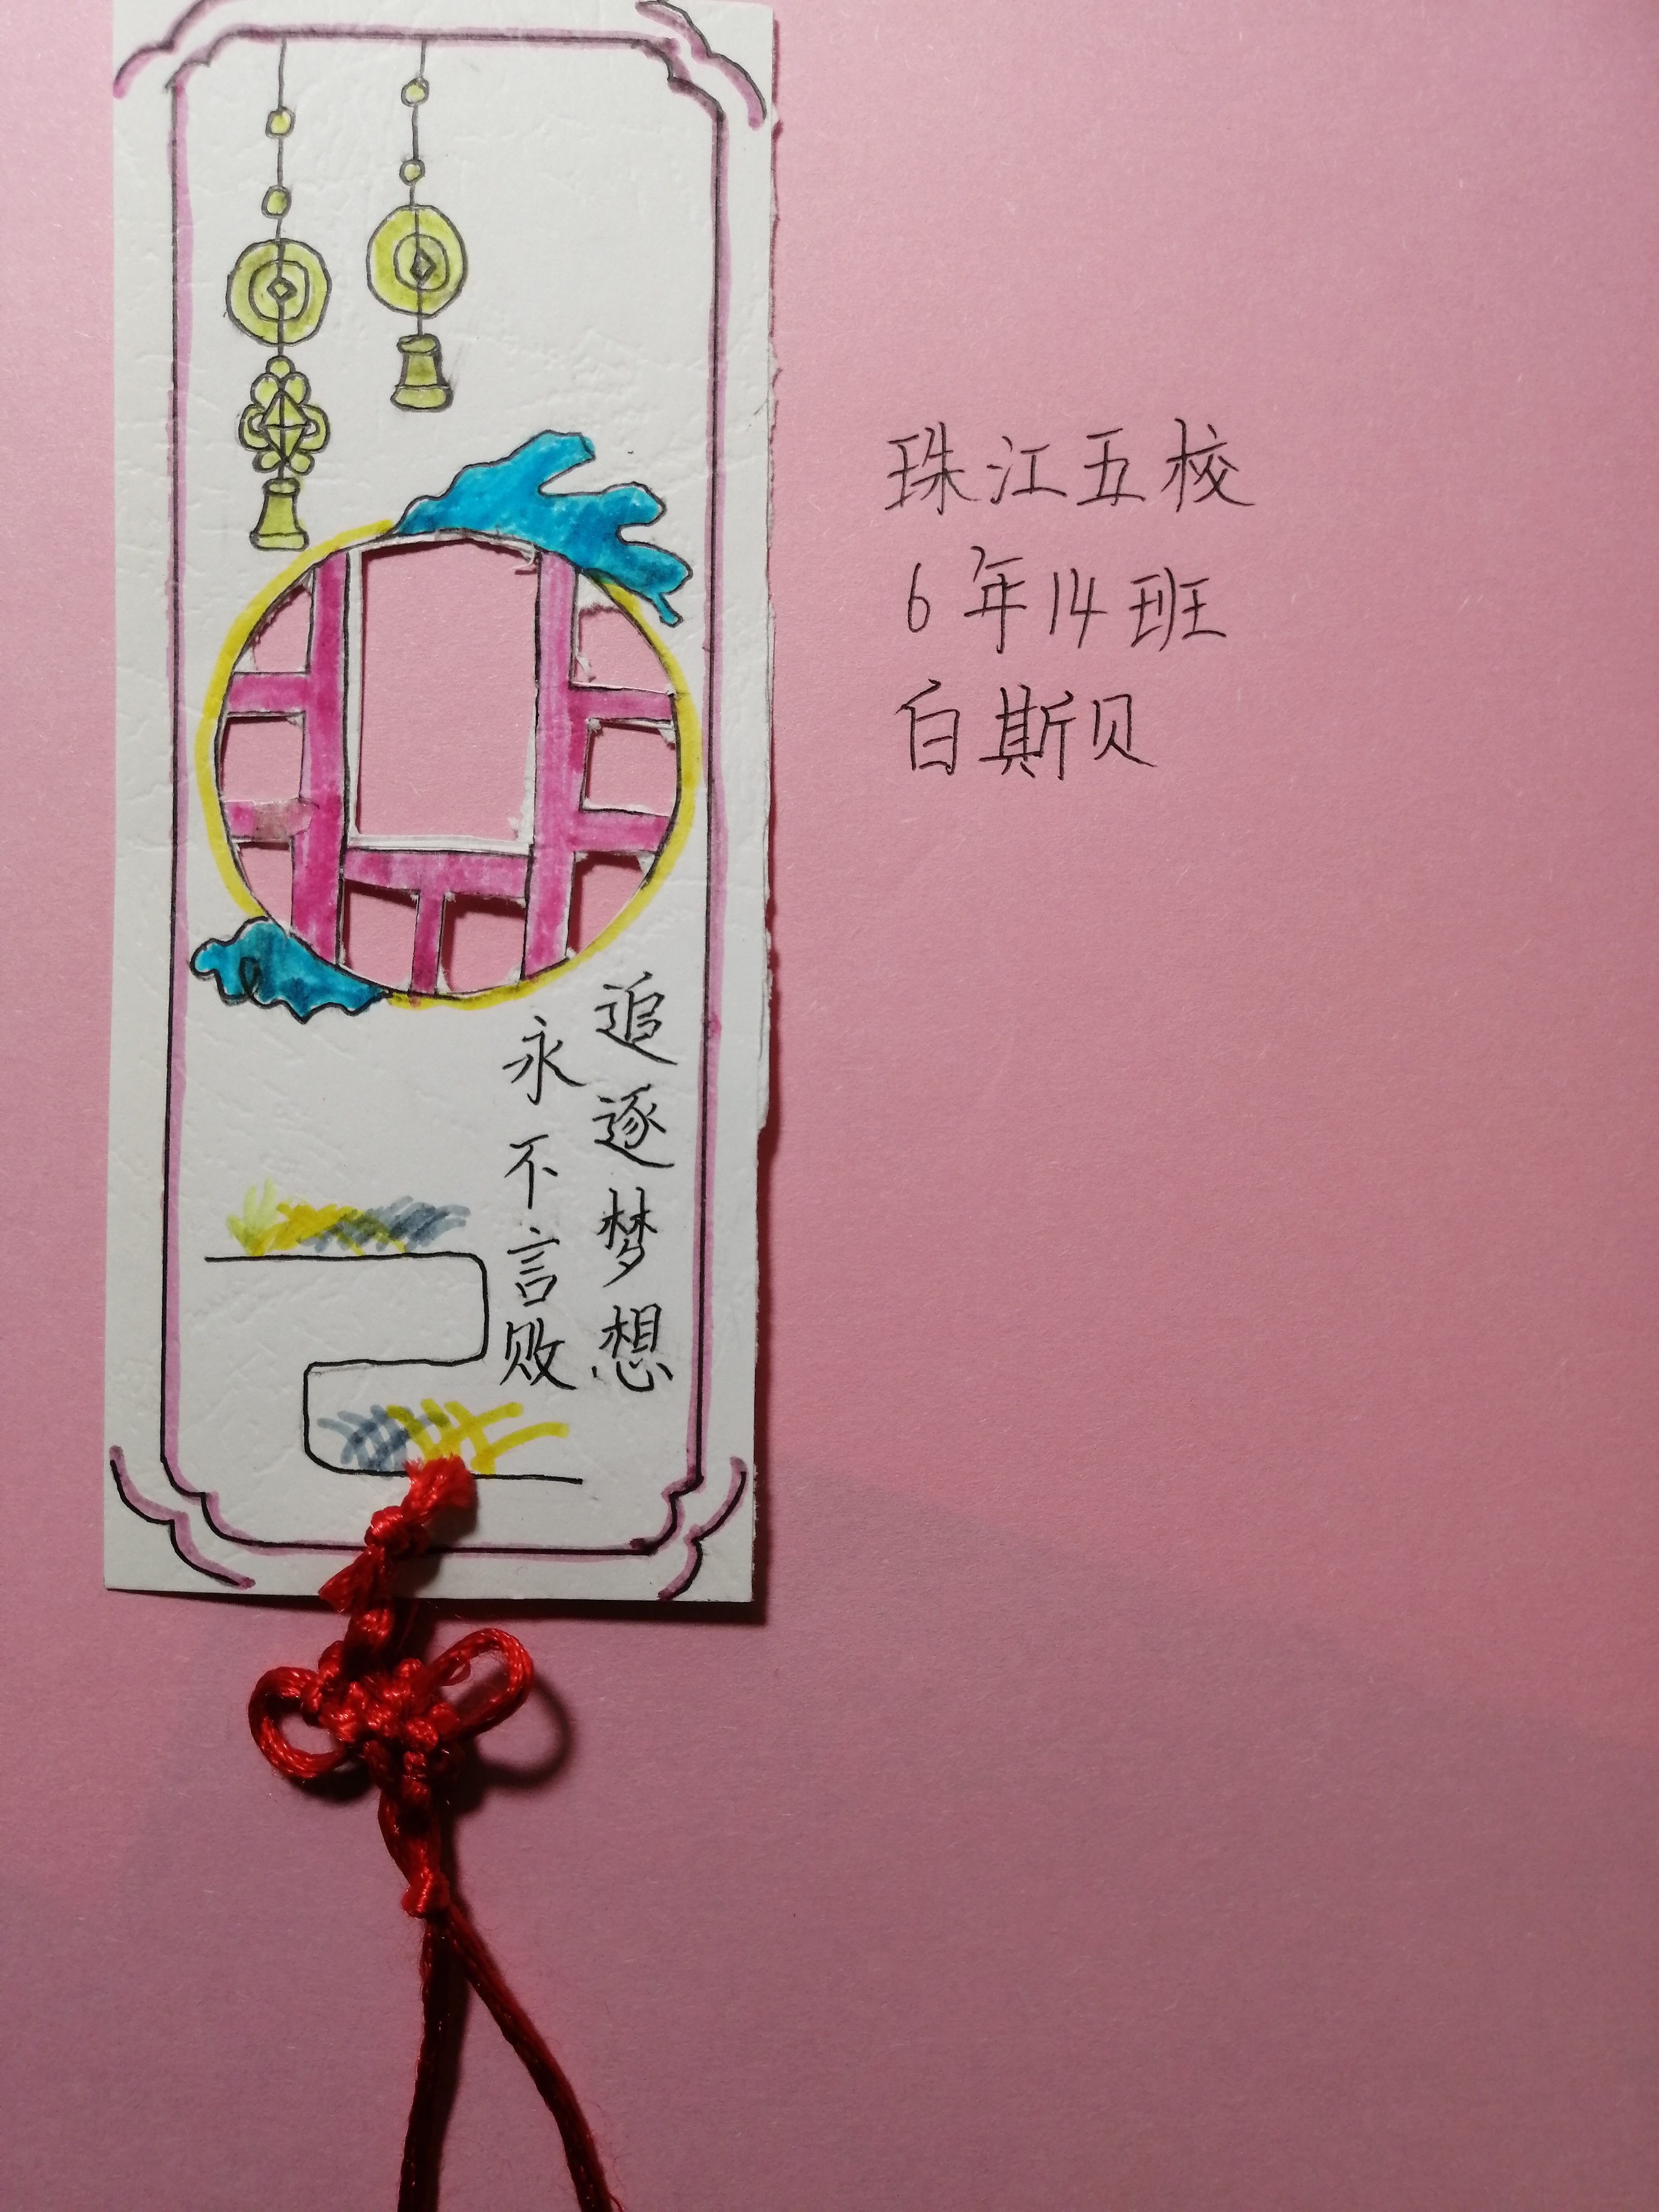 追逐梦想
永不言败
珠江五校
6年14班
白斯贝